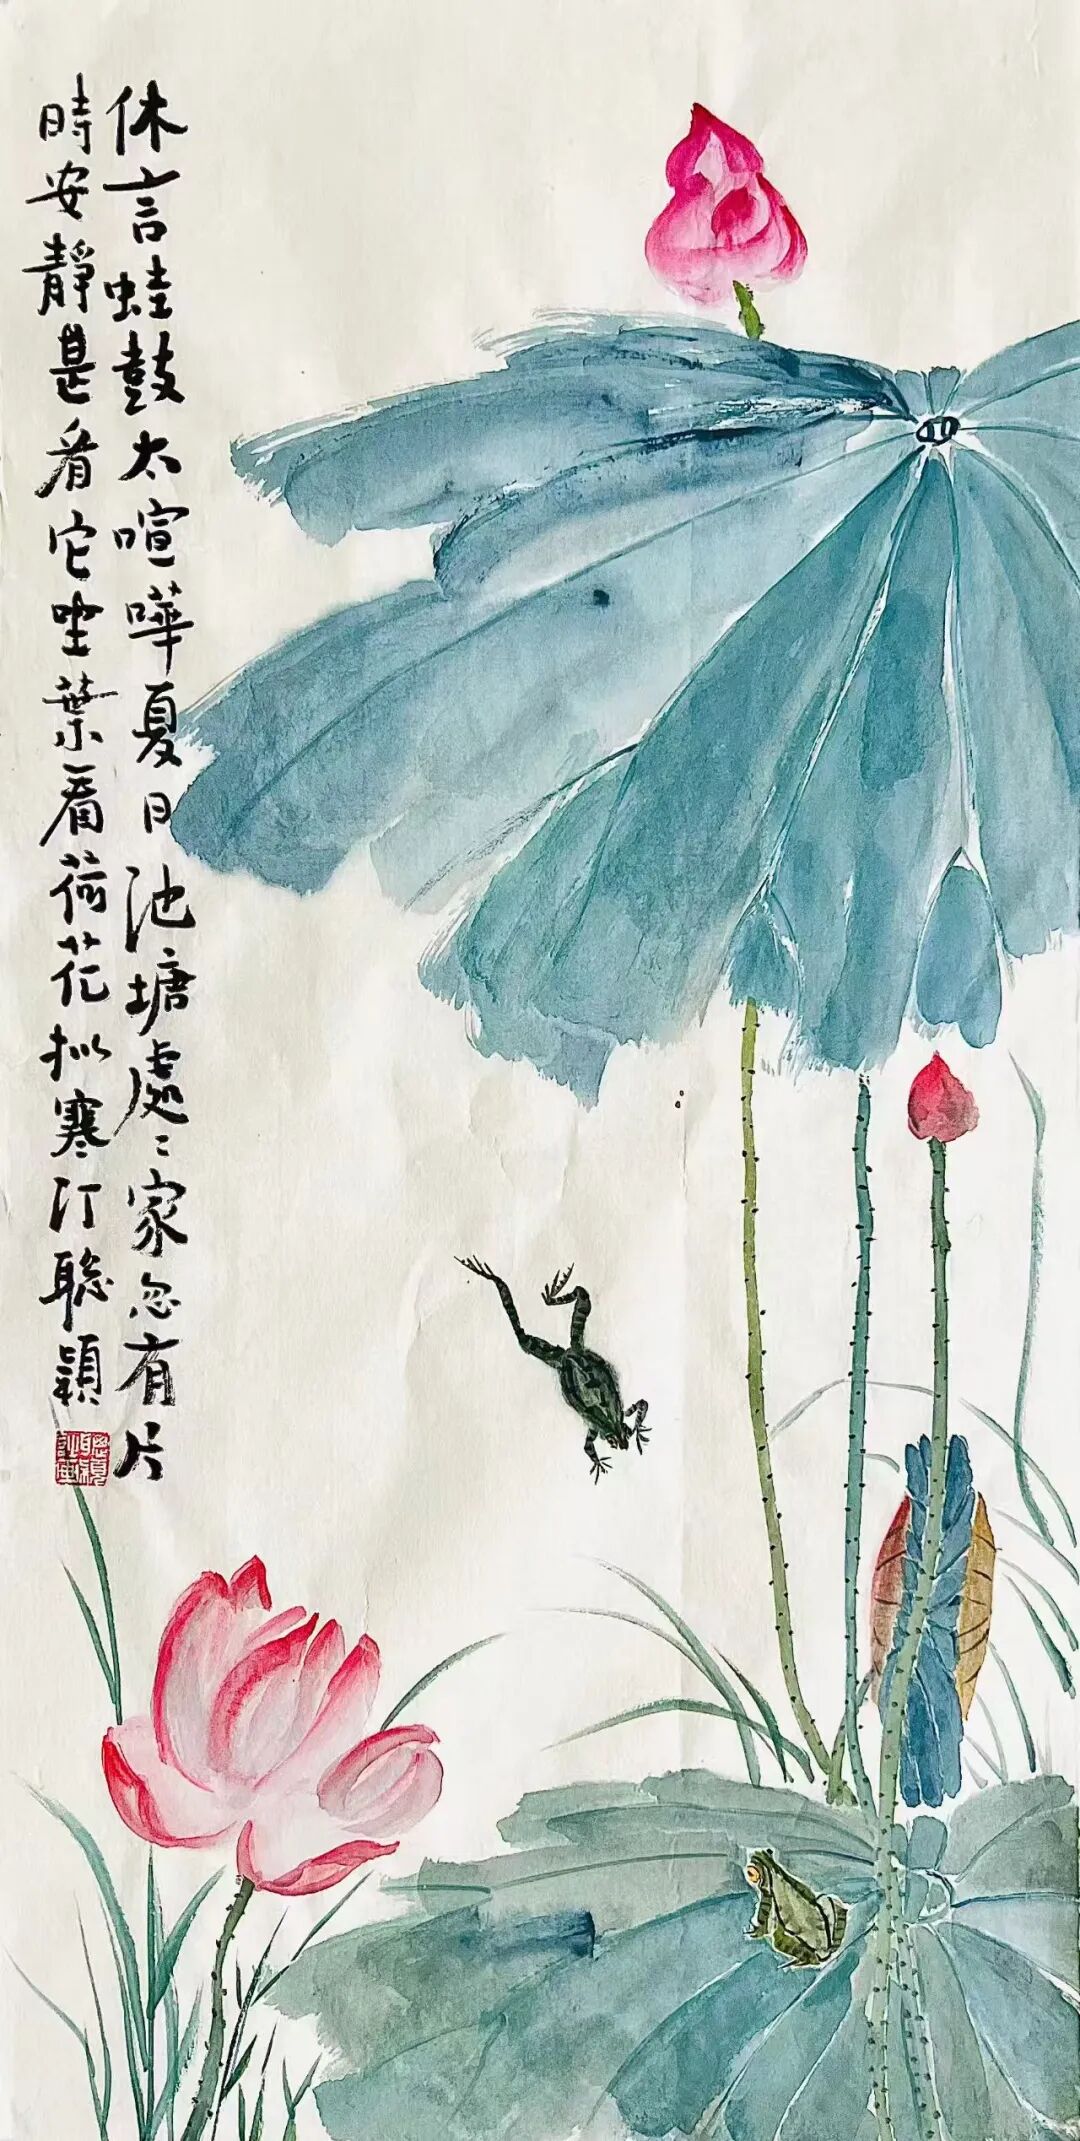 休言蛙鼓太喧嘩夏日池塘處〻家忽有片
時安靜甚看它坐葉看荷花拟寒汀聪穎